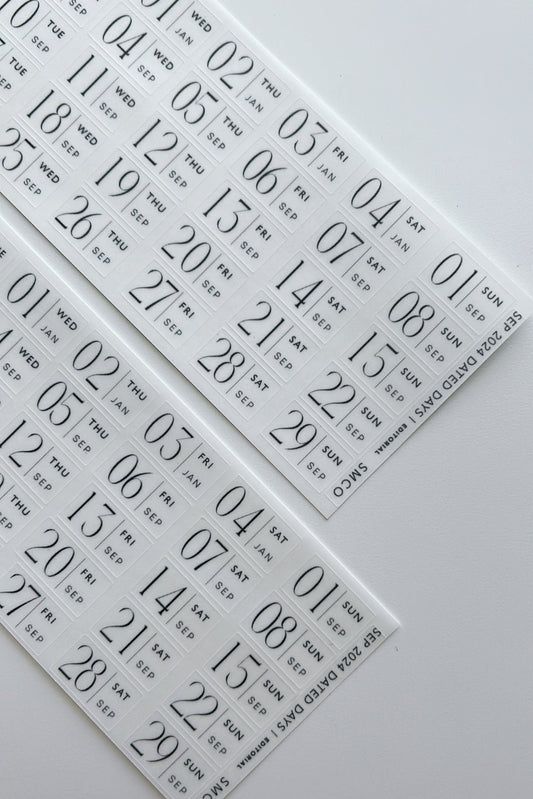 01 WED JAN 02 THU JAN 03 FRI JAN 04 SAT JAN 01 SUN SEP
04 WED SEP 05 THU SEP 06 FRI SEP 07 SAT SEP 08 SUN SEP
10 TUE SEP 11 WED SEP 12 THU SEP 13 FRI SEP 14 SAT SEP 15 SUN SEP
TUE SEP 18 WED SEP 19 THU SEP 20 FRI SEP 21 SAT SEP 22 SUN SEP
25 WED SEP 26 THU SEP 27 FRI SEP 28 SAT SEP 29 SUN SEP
SEP 2024 DATED DAYS | EDITORIAL SMCO
01 WED JAN 02 THU JAN 03 FRI JAN 04 SAT JAN 01 SUN SEP
WED SEP 05 THU SEP 06 FRI SEP 07 SAT SEP 08 SUN SEP
12 THU SEP 13 FRI SEP 14 SAT SEP 15 SUN SEP
THU SEP 20 FRI SEP 21 SAT SEP 22 SUN SEP
27 FRI SEP 28 SAT SEP 29 SUN SEP
SEP 2024 DATED DAYS | EDITORIAL SMCO